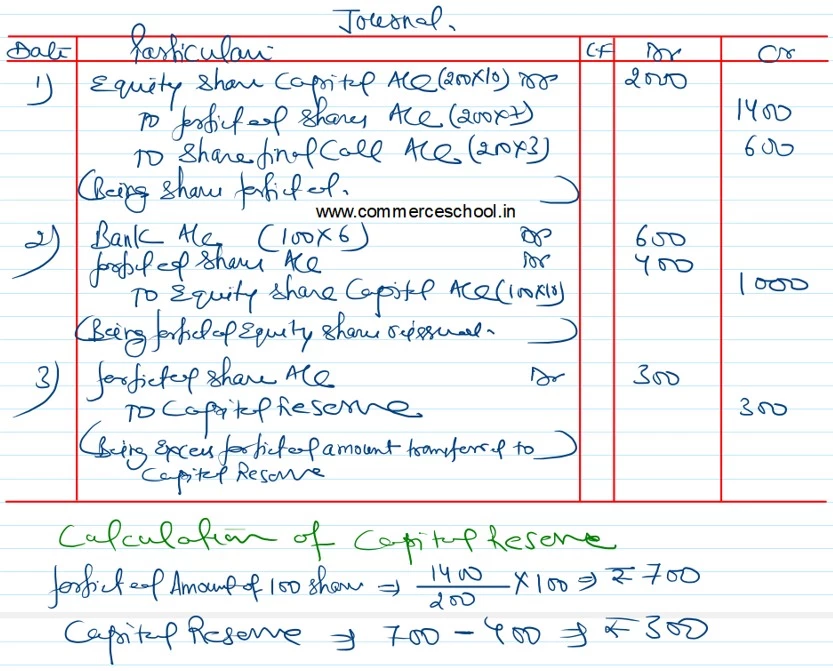 Journal.
Date Particulars CF Dr Cr
1) Equity Share Capital A/c (200×10) Dr 2000
To forfeited shares A/c (200×7) 1400
To Share final Call A/c (200×3) 600
(Being share forfeited. )
www.commerceschool.in
2) Bank A/c (100×6) Dr 600
forfeited share A/c Dr 400
To Equity share Capital A/c (100×10) 1000
(Being forfeited Equity share reissued. )
3) forfieted share A/c Dr 300
To Capital Reserve 300
(Being excess forfieted amount transferred to )
Capital Reserve
Calculation of Capital Reserve
forfieted Amount of 100 share ⇒ 1400/200 × 100 ⇒ ₹ 700
Capital Reserve ⇒ 700 - 400 ⇒ ₹ 300